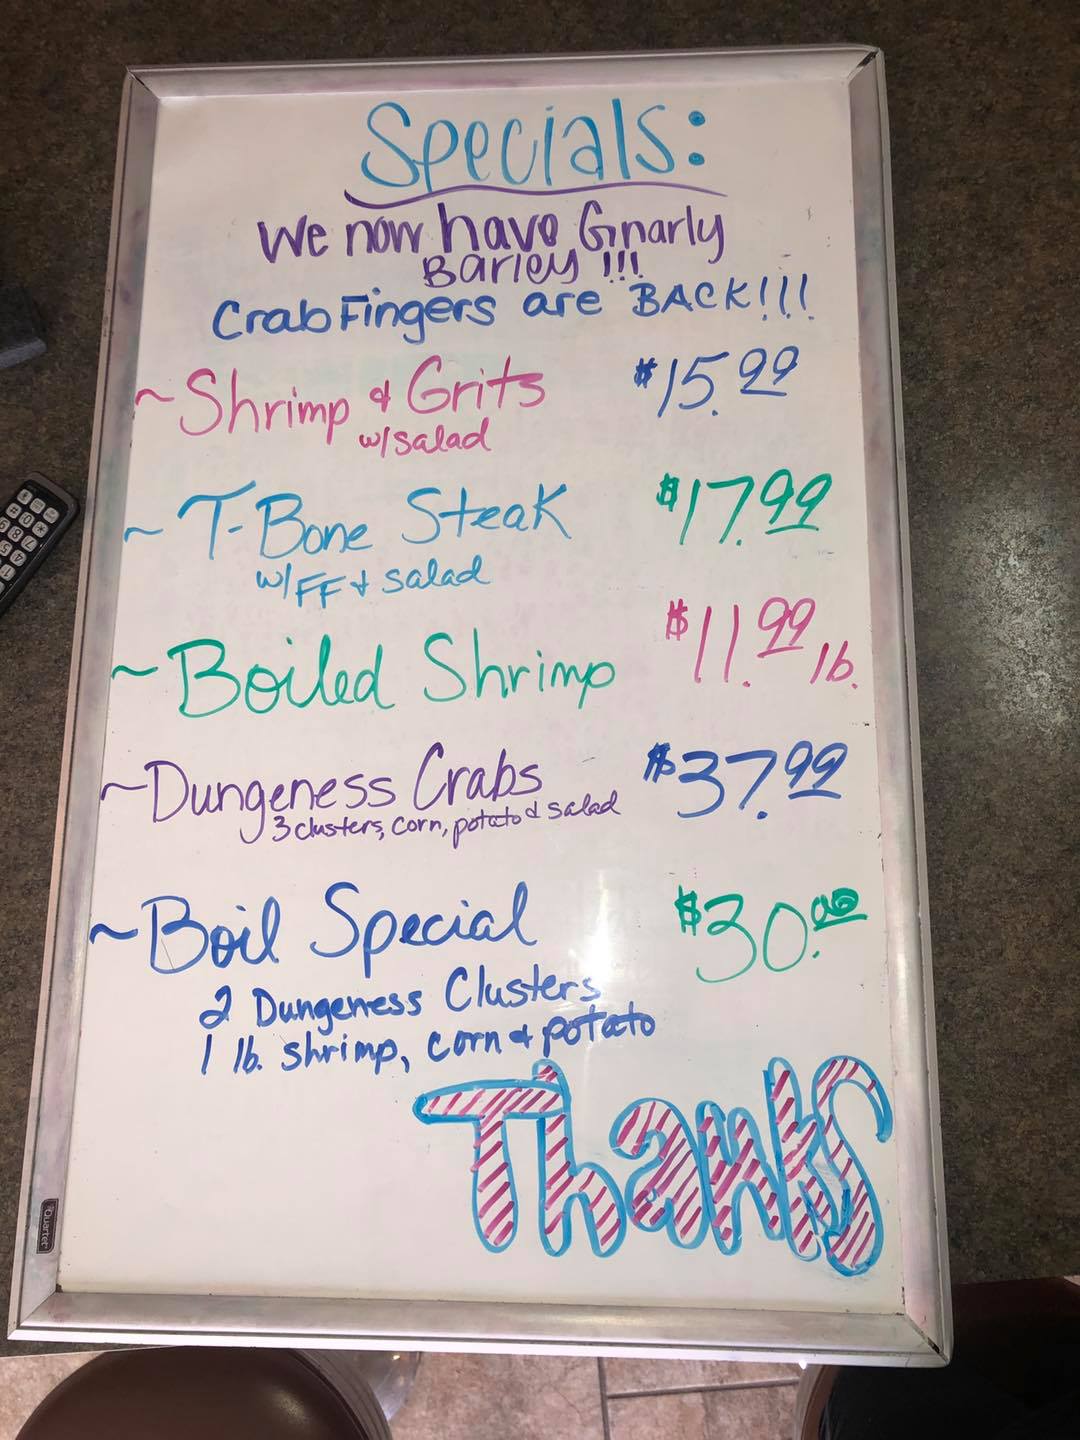 Specials:
We now have Gnarly
Barley!!!
Crab Fingers are BACK!!!
~Shrimp & Grits $15.99
w/salad
~T-Bone Steak $17.99
w/FF & salad
~Boiled Shrimp $11.99 lb.
~Dungeness Crabs $37.99
3 clusters, corn, potato & salad
~Boil Special $30.00
2 Dungeness Clusters
1 lb. shrimp, corn & potato
Thanks
Quartet